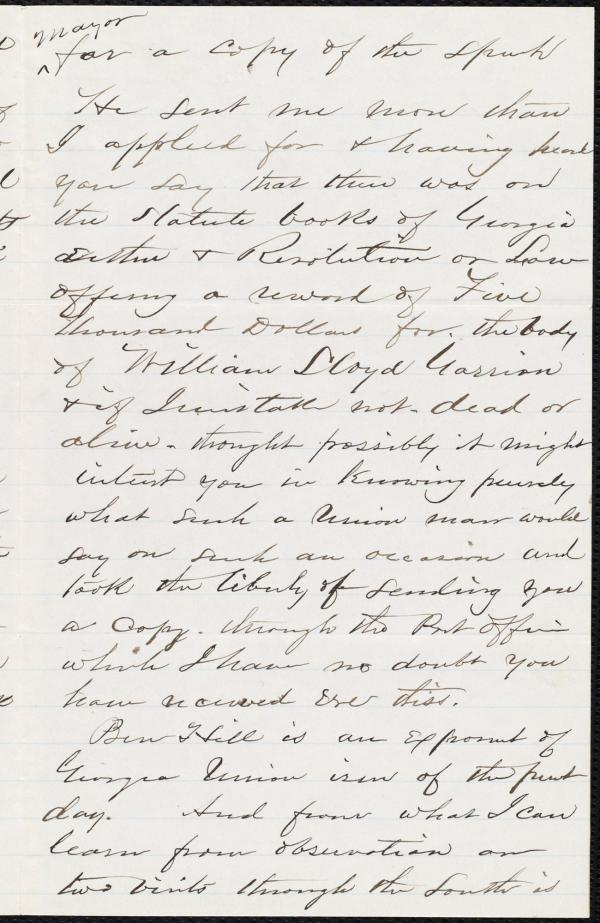 Mayor
^ for a copy of the speech
He sent me more than
I applied for & having heard
you say that there was on
the Statute books of Georgia
either a Resolution or Law
offering a reward of Five
Thousand Dollars for the body
of William Lloyd Garrison
& if I mistake not dead or
alive - thought possibly it might
interest you in knowing
what such a Union man would
say on such an occasion and
took the liberty of sending you
a copy. through the Post office
which I have no doubt you
have received ere this.
Ben Hill is an exponent of
Georgia Union ism of the present
day. And from what I can
learn from observation on
two visits through the South is